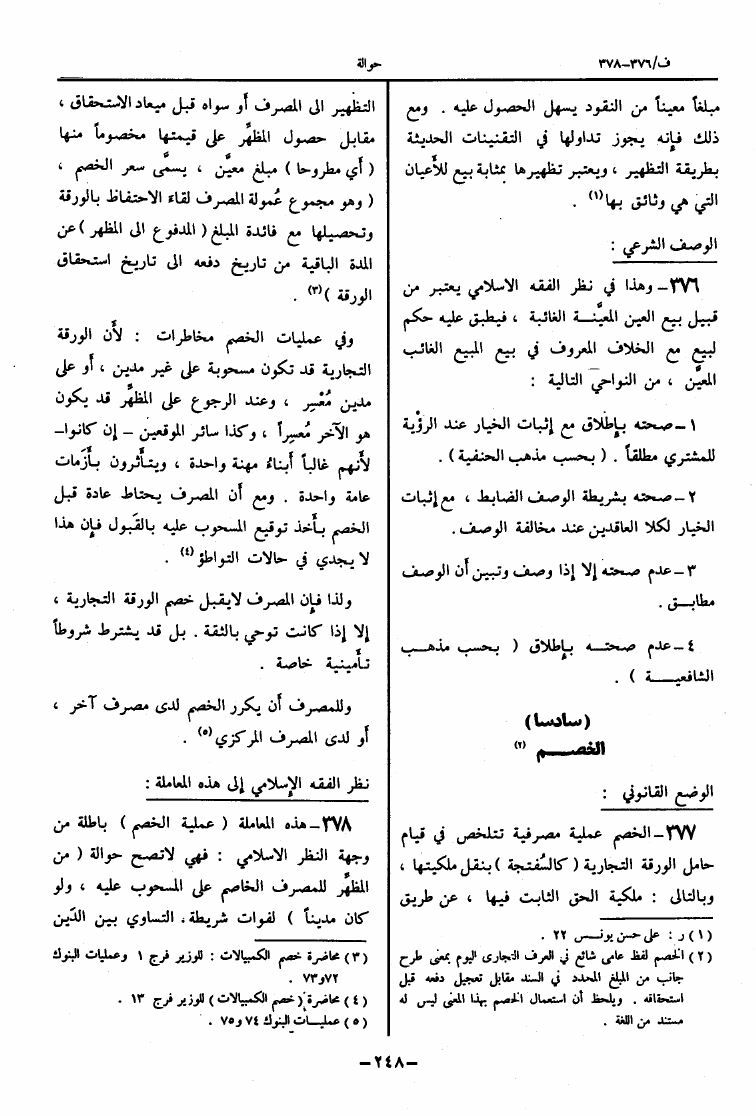 ف/٣٧٦-٣٧٨
حوالة
مبلغاً معيناً من النقود يسهل الحصول عليه . ومع
ذلك فإنه يجوز تداولها في التقنينات الحديثة
بطريقة التظهير ، ويعتبر تظهيرها بمثابة بيع للأعيان
التي هي وثائق بها(١) .
الوصف الشرعي :
٣٧٦ــ وهذا في نظر الفقه الاسلامي يعتبر من
قبيل بيع العين المعيَّنــة الغائبة ، فيطبق عليه حكم
لبيع مع الخلاف المعروف في بيع المبيع الغائب
المعيَّن ، من النواحي التالية :
١ــ صحته بإطلاق مع إثبات الخيار عند الرؤية
للمشتري مطلقاً . ( بحسب مذهب الحنفية ) .
٢ــ صحته بشريطة الوصف الضابط ، مع إثبات
الخيار لكلا العاقدين عند مخالفة الوصف .
٣ــ عدم صحته إلا إذا وصف وتبين أن الوصف
مطابــق .
٤ــ عدم صحتــه بإطلاق ( بحسب مذهــب
الشافعيــــة ) .
(سادسا)
الخصـــم (٢)
الوضع القانوني :
٣٧٧ــ الخصم عملية مصرفية تتلخص في قيام
حامل الورقة التجارية ( كالسُّفتجة ) بنقل ملكيتها ،
وبالتالى : ملكية الحق الثابت فيها ، عن طريق
(١) ر : على حسن يونــس ٢٢ .
(٢) الخصم لفظ عامى شائع في العرف التجارى اليوم بمعنى طرح
جانب من المبلغ المحدد في السند مقابل تعجيل دفعه قبل
استحقاقه . ويلحظ أن استعمال الخصم بهذا المعنى ليس له
مستند من اللغة .
التظهير الى المصرف أو سواه قبل ميعاد الاستحقاق ،
مقابل حصول المظهِّر على قيمتها مخصوماً منها
( أي مطروحا ) مبلغ معيَّن ، يسمَّى سعر الخصم ،
( وهو مجموع عُمولة المصرف لقاء الاحتفاظ بالورقة
وتحصيلها مع فائدة المبلغ ( المدفوع الى المظهر ) عن
المدة الباقية من تاريخ دفعه الى تاريخ استحقاق
الورقة )(٣) .
وفي عمليات الخصم مخاطرات : لأن الورقة
التجارية قد تكون مسحوبة على غير مدين ، أو على
مدين مُعْسِر ، وعند الرجوع على المظهِّر قد يكون
هو الآخر مُعسِراً ، وكذا سائر الموقعين – إن كانوا –
لأنهم غالباً أبناء مهنة واحدة ، ويتأثرون بأزمات
عامة واحدة . ومع أن المصرف يحتاط عادة قبل
الخصم بأخذ توقيع المسحوب عليه بالقَبول فإن هذا
لا يجدي في حالات التواطؤ(٤) .
ولذا فإن المصرف لايقبل خصم الورقة التجارية ،
إلا إذا كانت توحي بالثقة . بل قد يشترط شروطاً
تأمينية خاصة .
وللمصرف أن يكرر الخصم لدى مصرف آخر ،
أو لدى المصرف المركزي(٥) .
نظر الفقه الإسلامي إلى هذه المعاملة :
٣٧٨ــ هذه المعاملة ( عملية الخصم ) باطلة من
وجهة النظر الاسلامي : فهي لاتصح حوالة ( من
المظهِّر للمصرف الخاصم على المسحوب عليه ، ولو
كان مديناً ) لفوات شريطة التساوي بين الدَّين
(٣) محاضرة خصم الكمبيالات : للوزير فرج ١ وعمليات البنوك
٧٢و٧٣ .
(٤) محاضرة ( خصم الكمبيالات ) للوزير فرج ١٣ .
(٥) عمليــات البنوك ٧٤ و٧٥ .
–٢٤٨–